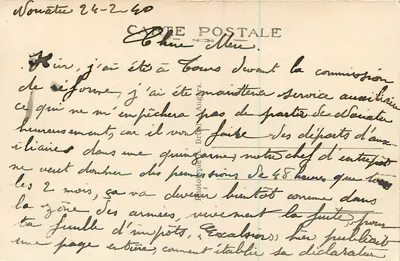 Nouatre 24-2-40
CARTE POSTALE
Chère Mère.
Hier, j'ai été à Tours devant la commission
de réforme, j'ai été maintenu service auxiliaire
ce qui ne m'empêchera pas de partir de Nouatre
heureusement, car il vont faire des départs d'aux
iliaires dans une quinzaine, notre chef d'entrepôt
ne veut donner des permissions de 48 heures que tous
les 2 mois, ça va devenir bientôt comme dans
la zône des armées, vivement la fuite, pour
ta feuille d'impôts, "Excelsior" hier publiait
une page entière, comment établir sa déclaration